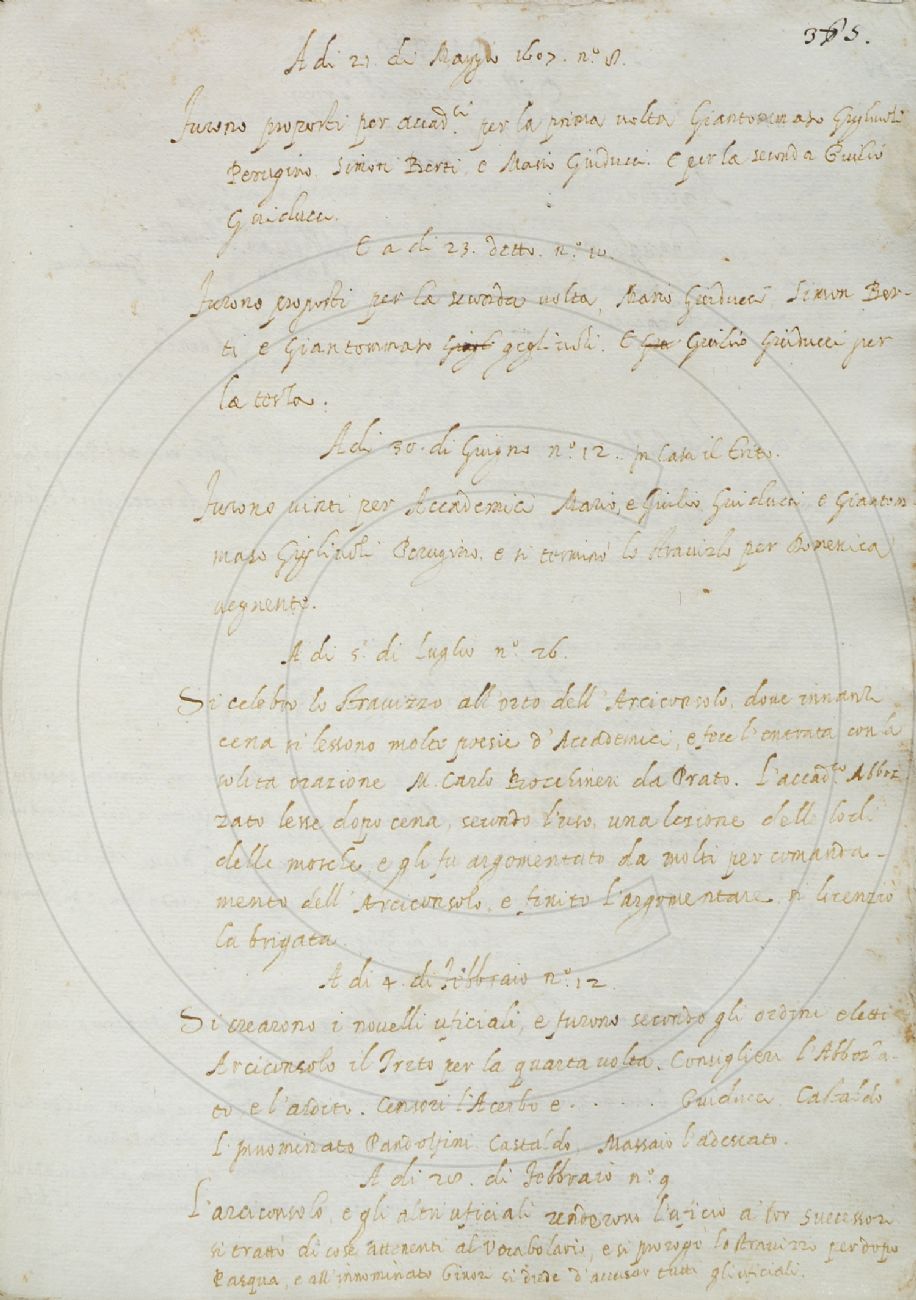 365.
A di 21. di Maggio 1607. n.º 8.
Furono proposti per accad.ci per la prima volta Giantommaso Giglioli
Perugino, Simon Berti, e Mario Guiducci. E per la seconda Giulio
Guiducci.
E a di 23. detto. n.º 10.
Furono proposti per la seconda volta, Mario Guiducci, Simon Ber-
ti e Giantommaso gigliuoli. E Giulio Guiducci per
la terza.
A di 30. di Giugno n.º 12. in Casa il
Furono vinti per Accademici Mario, e Giulio Guiducci, e Giantom
maso Gigliuoli Perugino, e si terminò lo Stravizzo per Domenica
vegnente.
A di 5. di Luglio n.º 26.
Si celebrò lo Stravizzo all'orto dell'Arciconsolo, dove innanzi
cena si lessono molte poesie d'Accademici, e fece l'entrata con la
solita orazione M. Carlo da Prato. L'accad.co Abboz
zato lesse dopo cena, secondo l'uso, una lezione delle lodi
delle mosche, e gli fu argomentato da molti per comanda-
mento dell'Arciconsolo, e finito l'argomentare, si licenziò
la brigata.
A di 4. di Febbraio n.º 12.
Si crearono i novelli uficiali, e furono secondo gli ordini eletti
Arciconsolo il Trito per la quarta volta. Consiglieri l'Abbozza-
to, e l'. Censori l'Acerbo e . . . . . Guiducci Castaldo
L'innominato Pandolfini Castaldo, Massaio l'adescato.
A di 28. di Febbraio n.º 9
L'arciconsolo, e gli altri uficiali renderono l'uficio a' lor successori
si trattò di cose attenenti al Vocabolario, e si propose lo stravizzo per dopo
Pasqua, e all'innominato Ginori si diede d'accusar tutti gli uficiali.